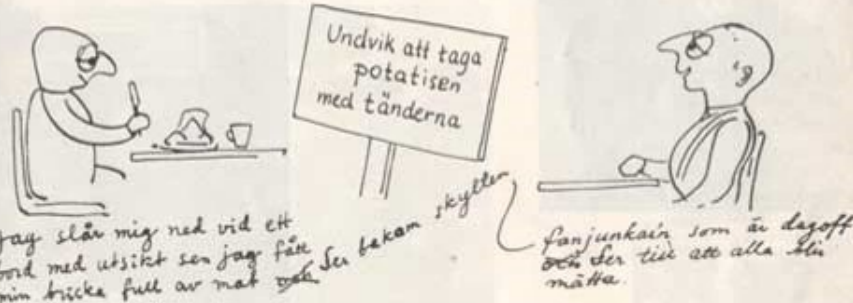 Undvik att taga
potatisen
med tänderna
Jag slår mig ned vid ett
bord med utsikt sen jag fått
min bricka full av mat och ser bakom skylten
fanjunkarn som är dagoff
och ser till att alla blir
mätta.